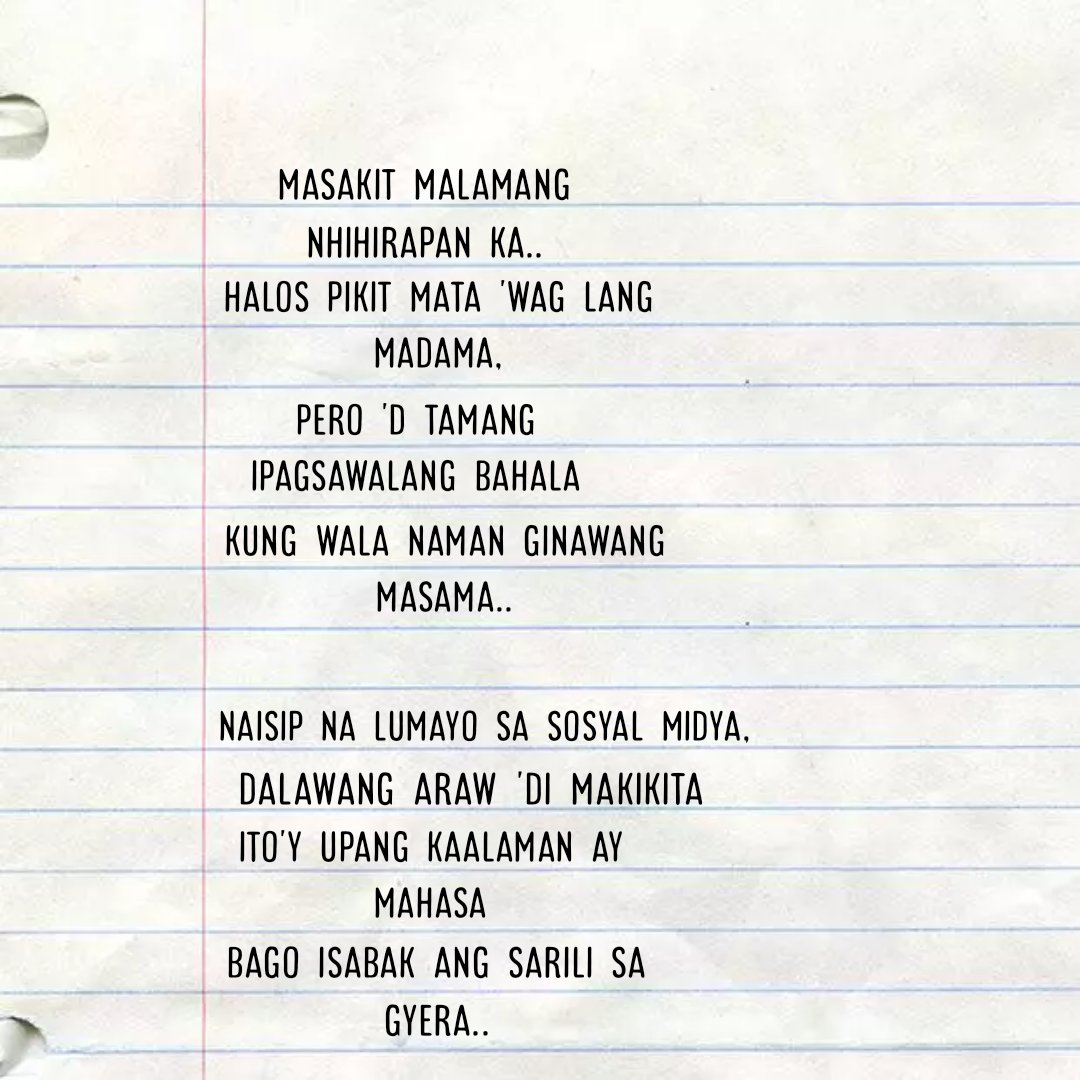 MASAKIT MALAMANG
NHIHIRAPAN KA..
HALOS PIKIT MATA 'WAG LANG
MADAMA,
PERO 'D TAMANG
IPAGSAWALANG BAHALA
KUNG WALA NAMAN GINAWANG
MASAMA..
NAISIP NA LUMAYO SA SOSYAL MIDYA,
DALAWANG ARAW 'DI MAKIKITA
ITO'Y UPANG KAALAMAN AY
MAHASA
BAGO ISABAK ANG SARILI SA
GYERA..